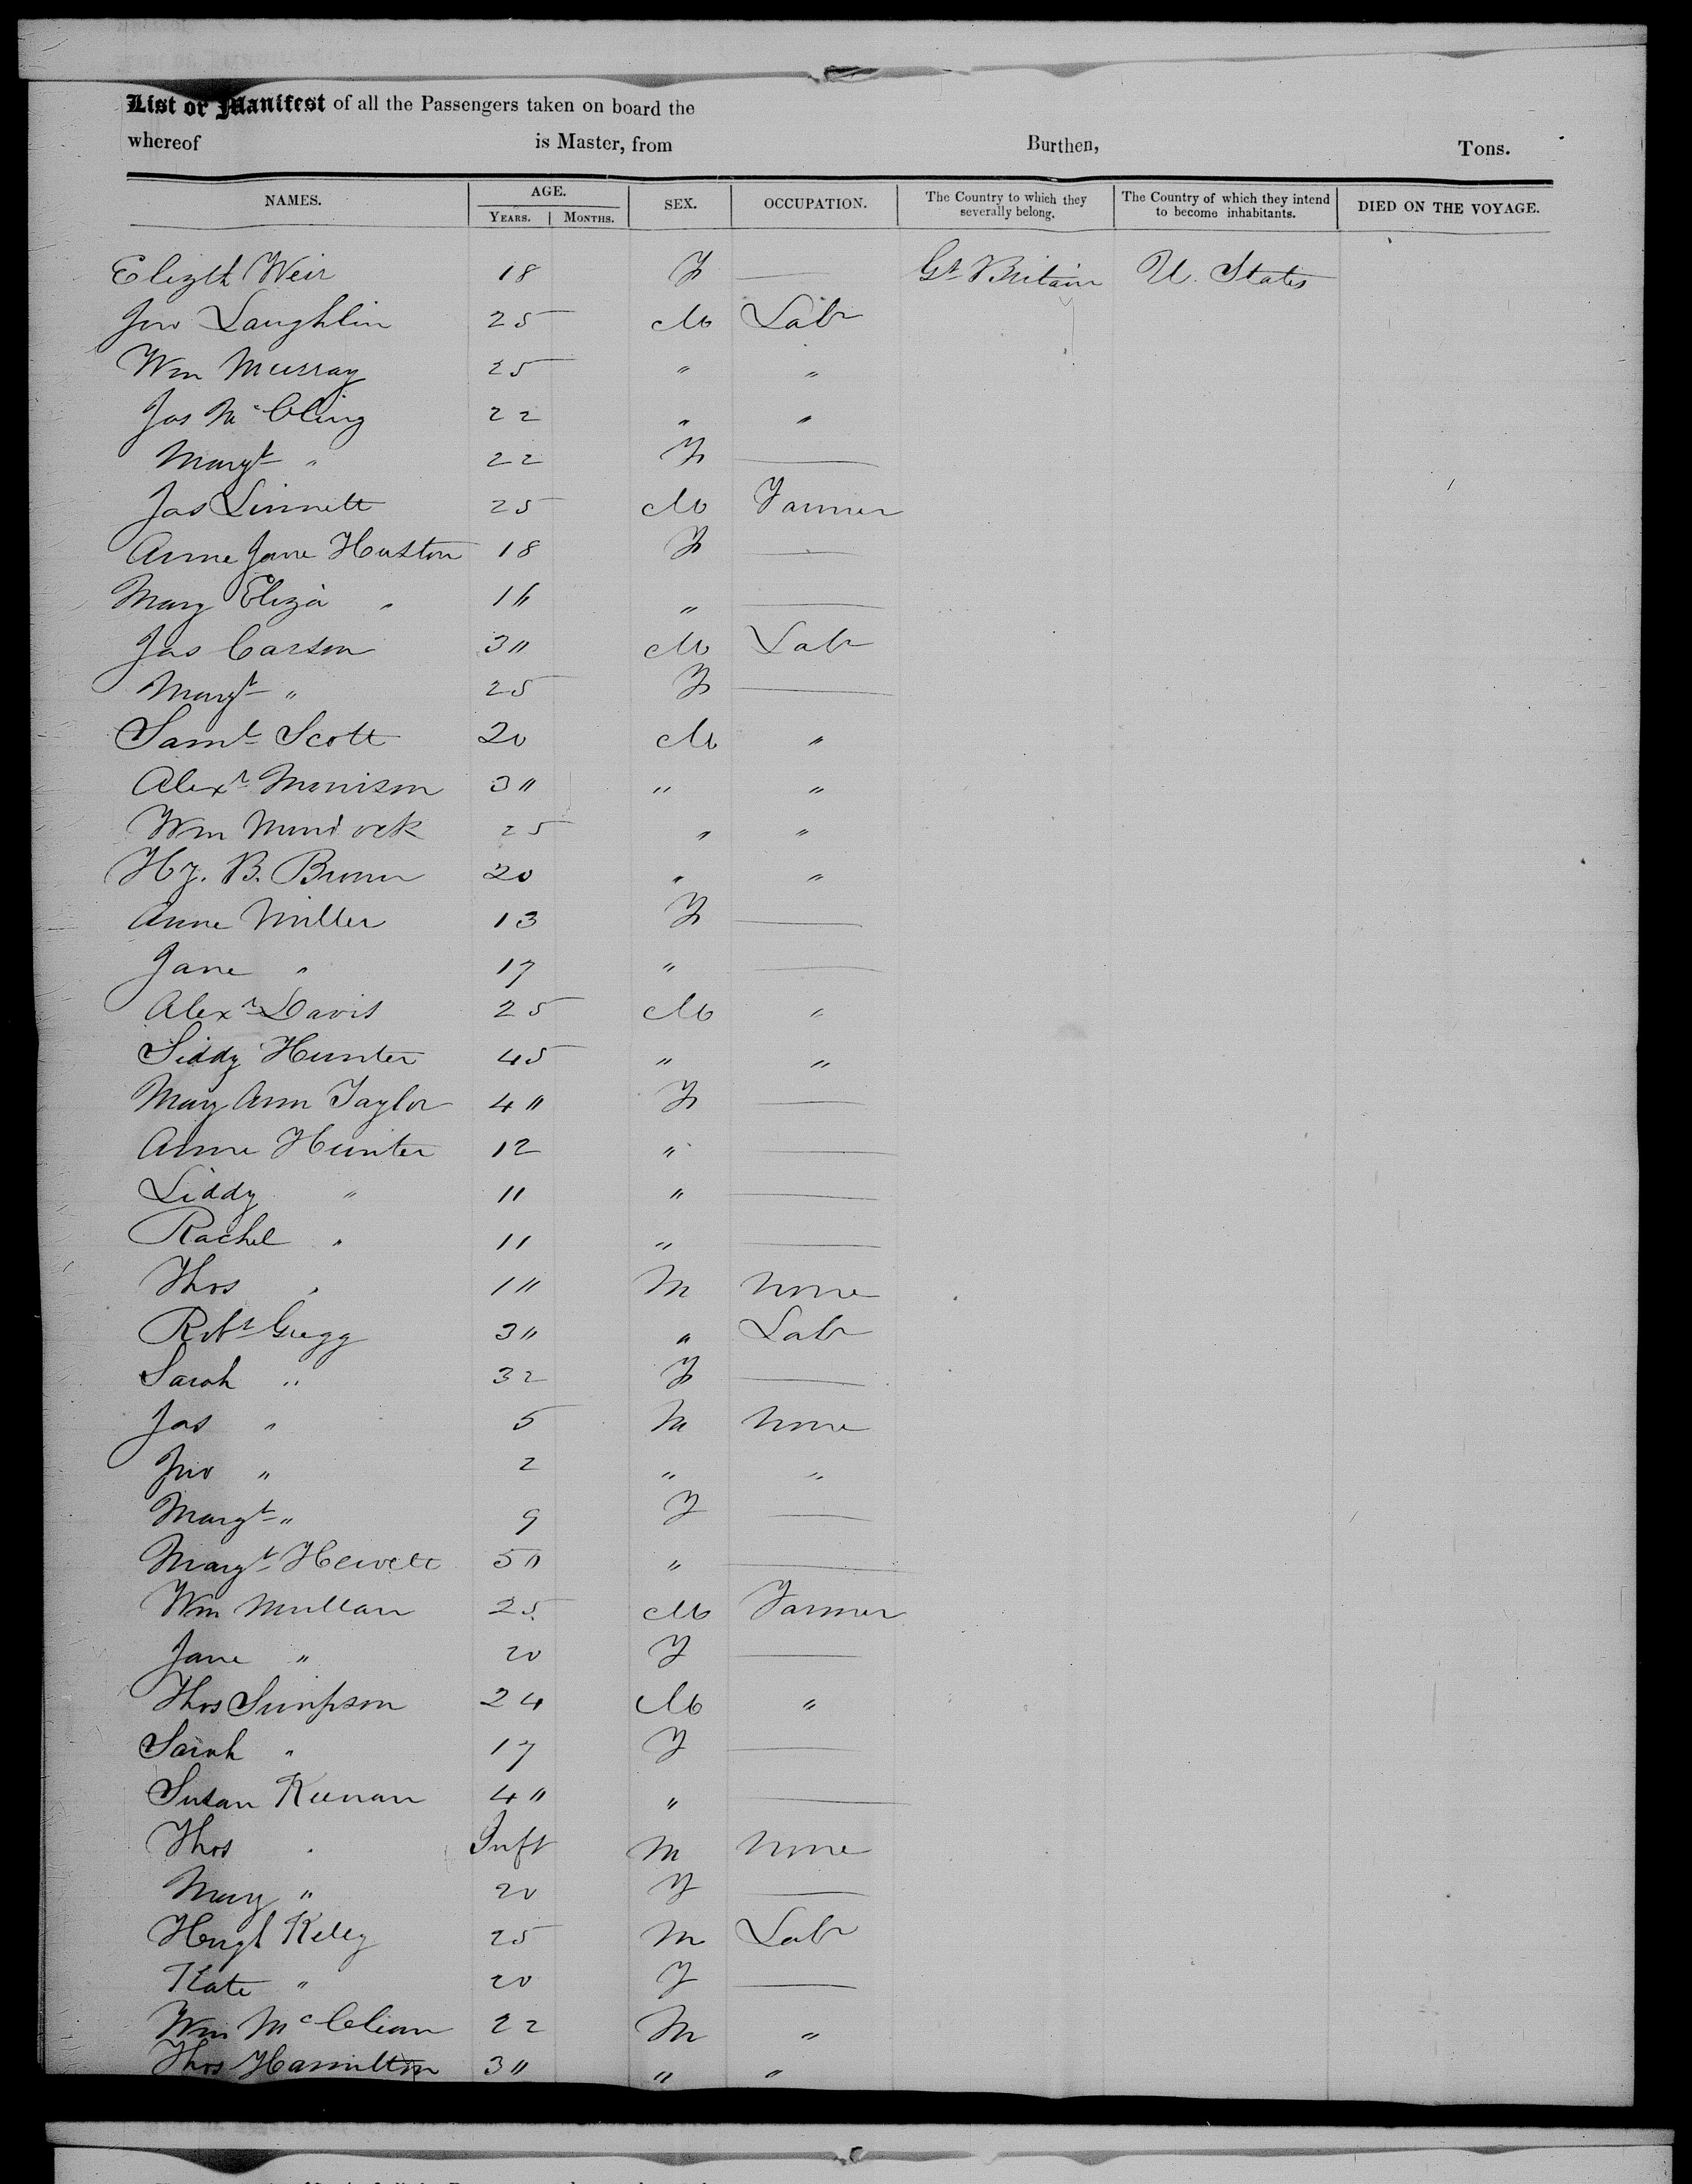 List or Manifest of all the Passengers taken on board the
whereof is Master, from Burthen, Tons.
NAMES. AGE. SEX. OCCUPATION. The Country to which they severally belong. The Country of which they intend to become inhabitants. DIED ON THE VOYAGE.
YEARS. MONTHS.
Elizth Weir 18 F — Gt Britain U. States
Jno Laughlin 25 M Labr
Wm Murray 25 " "
Jas McCling 22 " "
Margt " 22 F —
Jas Linnett 25 M Farmer
Anne Jane Huston 18 F —
Mary Eliza " 16 " —
Jas Carson 3" M Labr
Margt " 25 F —
Saml Scott 20 M "
Alexr Morrison 3" " "
Wm Murdock 25 " "
Hy. B. Brown 20 " "
Anne Miller 13 F —
Jane " 17 " —
Alexr Davis 25 M "
Siddy Hunter 45 " "
Mary Ann Taylor 4" F —
Anne Hunter 12 " —
Liddy " 11 " —
Rachel " 11 " —
Thos " 1" M None
Robt Gregg 3" " Labr
Sarah " 32 F —
Jas " 5 M None
Jno " 2 " "
Margt " 9 F —
Margt Hewett 5" " —
Wm Mullan 25 M Farmer
Jane " 20 F —
Thos Simpson 24 M "
Sarah " 17 F —
Susan Keenan 4" " —
Thos " Inft M None
Mary " 20 F —
Hugh Kelly 25 M Labr
Kate " 20 F —
Wm McClean 22 M "
Thos Hamilton 3" " "